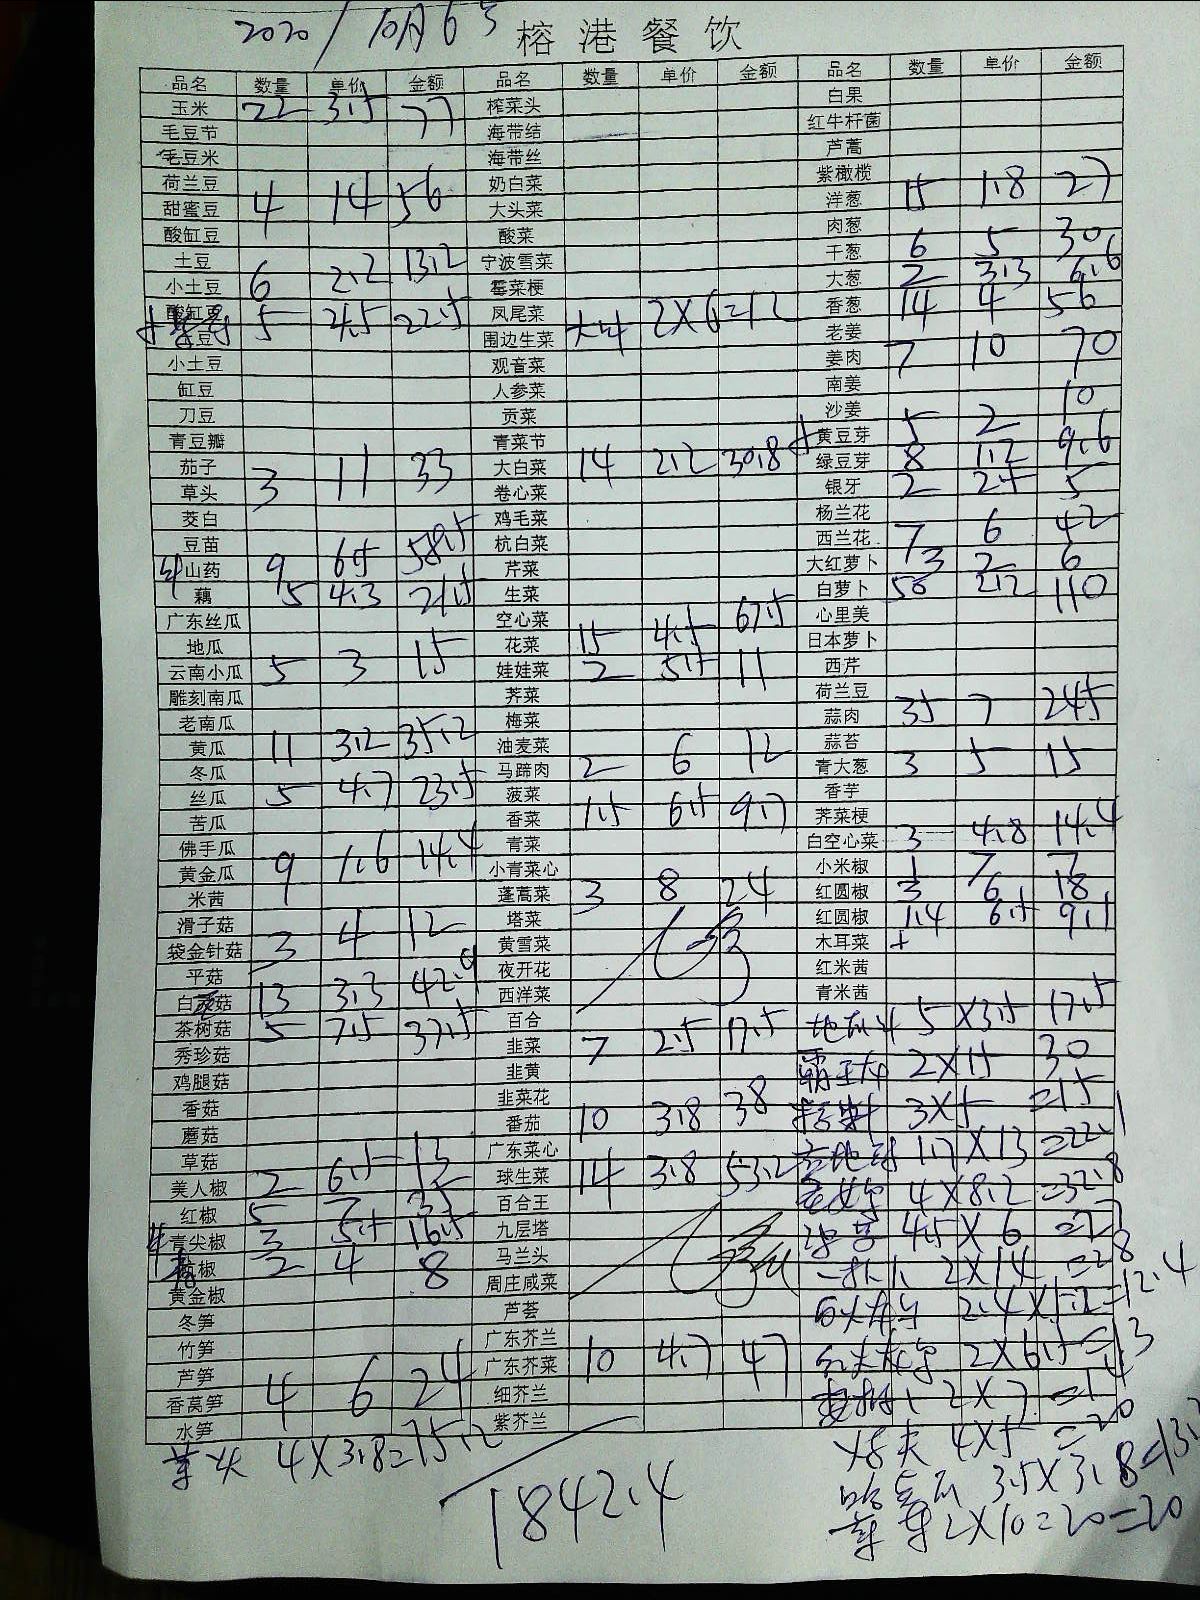 2020/10月6号 榕港餐饮
品名 数量 单价 金额 品名 数量 单价 金额 品名 数量 单价 金额
玉米 22 3.5 77 榨菜头 白果
毛豆节 海带结 红牛杆菌
毛豆米 海带丝 芦蒿
荷兰豆 奶白菜 紫橄榄
甜蜜豆 4 14 56 大头菜 洋葱 15 1.8 27
酸缸豆 酸菜 肉葱
土豆 宁波雪菜 干葱 6 5 30
小土豆 6 2.2 13.2 霉菜梗 大葱 2 3.3 6.6
酸缸豆 5 4.5 22.5 凤尾菜 2X6=12 香葱 14 4 56
豆 围边生菜 老姜
小土豆 观音菜 姜肉 7 10 70
缸豆 人参菜 南姜
刀豆 贡菜 沙姜
青豆瓣 青菜节 黄豆芽 5 2 10
茄子 大白菜 14 2.2 30.8 绿豆芽 8 1.2 9.6
草头 3 11 33 卷心菜 银牙 2 2.5 5
茭白 鸡毛菜 杨兰花
豆苗 杭白菜 西兰花 7 6 42
山药 9 6.5 58.5 芹菜 大红萝卜 3 2 6
藕 5 4.3 21.5 生菜 白萝卜 50 2.2 110
广东丝瓜 空心菜 心里美
地瓜 花菜 15 4.5 67.5 日本萝卜
云南小瓜 5 3 15 娃娃菜 2 5.5 11 西芹
雕刻南瓜 荠菜 荷兰豆
老南瓜 梅菜 蒜肉 35 7 245
黄瓜 11 3.2 35.2 油麦菜 蒜苔
冬瓜 马蹄肉 2 6 12 青大葱 3 5 15
丝瓜 5 4.7 23.5 菠菜 香芋
苦瓜 香菜 1.5 6.5 9.7 荠菜梗
佛手瓜 青菜 白空心菜 3 4.8 14.4
黄金瓜 9 1.6 14.4 小青菜心 小米椒 1 7 7
米茜 蓬蒿菜 3 8 24 红圆椒 3 6 18
滑子菇 塔菜 红圆椒 1.4 6.5 9.1
袋金针菇 3 4 12 黄雪菜 木耳菜
平菇 夜开花 红米茜
白灵菇 13 3.3 42.9 西洋菜 青米茜
茶树菇 5 7.5 37.5 百合 5X3.5 17.5
秀珍菇 韭菜 7 2.5 17.5 2X15 30
鸡腿菇 韭黄 3X5 =15
香菇 韭菜花
蘑菇 番茄 10 3.8 38 1.7X13 =22.1
草菇 广东菜心 4X8.2 =32.8
美人椒 2 6.5 13 球生菜 14 3.8 53.2 4.5X6 =27
红椒 5 7 35 百合王 2X14 =28
青尖椒 3 5.5 16.5 九层塔
杭椒 2 4 8 马兰头
黄金椒 周庄咸菜
冬笋 芦荟
竹笋 广东芥兰 2X6.5=13
芦笋 广东芥菜 10 4.7 47 2X7 =14
香莴笋 4 6 24 细芥兰
水笋 紫芥兰
4X3.8=15.2 4X5 =20
1842.4 3.5X3.8
2X10=20=20